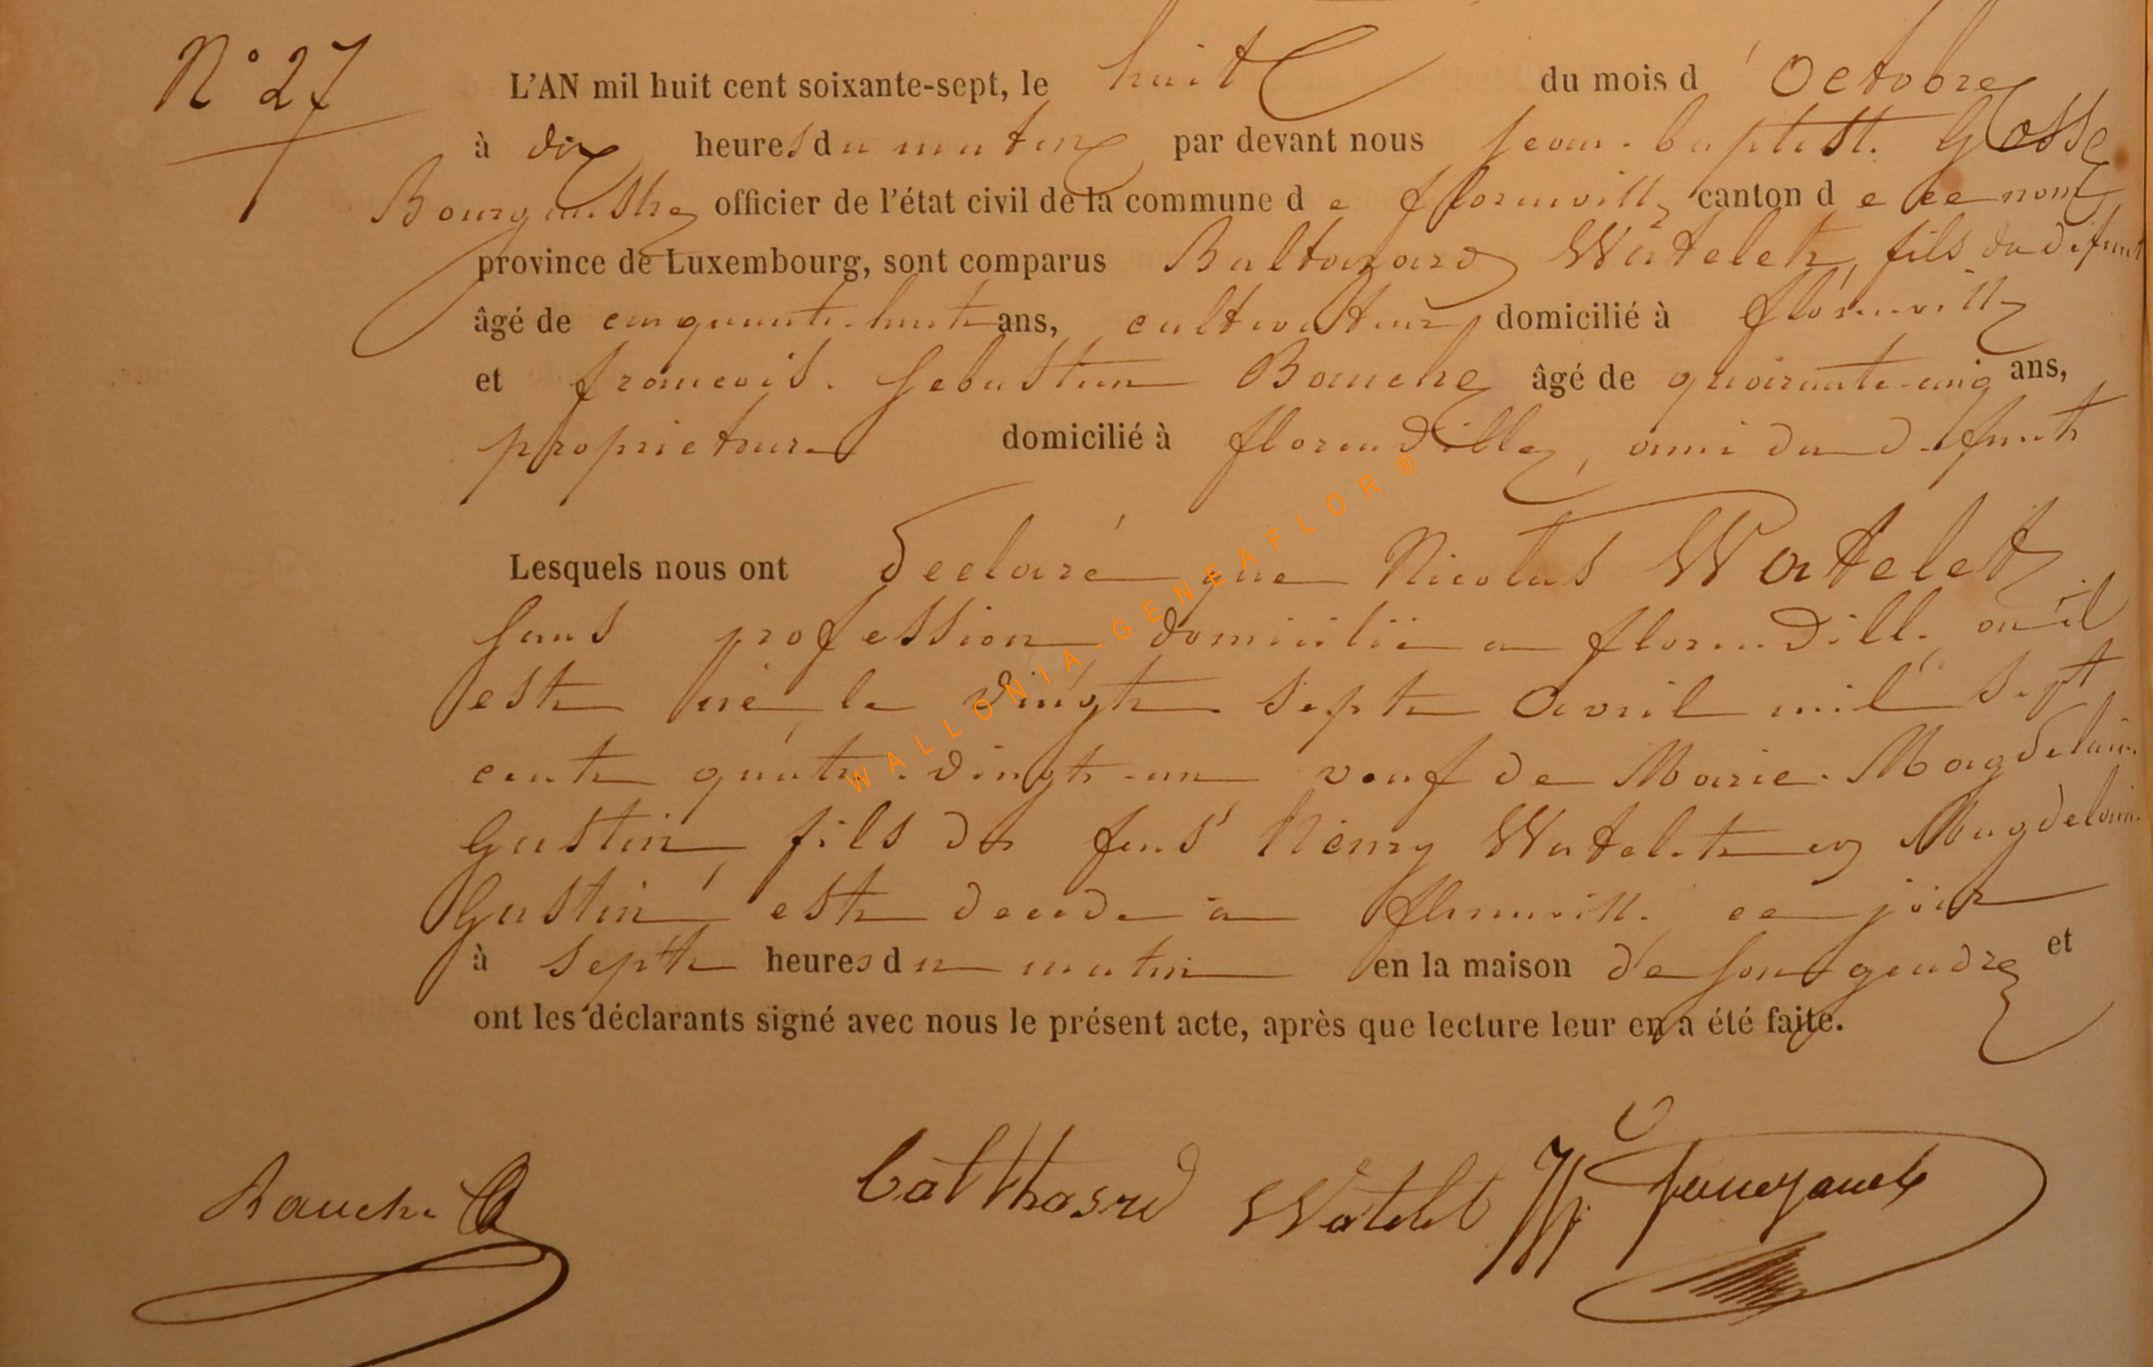 N° 27
L'AN mil huit cent soixante-sept, le huit du mois d'Octobre
à dix heures du matin par devant nous Jean-baptiste Gosse
Bourgmestre officier de l'état civil de la commune de florenville canton de ce nom
province de Luxembourg, sont comparus Baltazard Watelet, fils du défunt
âgé de cinquante-huit ans, cultivateur, domicilié à florenville
et francois Sebastien Bauche âgé de quarante-cinq ans,
proprietaire domicilié à florenville, ami du defunt
Lesquels nous ont declaré que Nicolas Watelet
sans profession domicilié a florenville, où il
est né le vingt sept avril mil sept
cent quatre-vingt-un veuf de Marie-Magdelaine
Gustin, fils de feus Henry Watelet et Magdelaine
Gustin, est decede à florenville ce jour
à sept heures du matin en la maison de son gendre et
ont les déclarants signé avec nous le présent acte, après que lecture leur en a été faite.
Bauche
balthasrd Watelet
WALLONIA-GENEAFLOR®